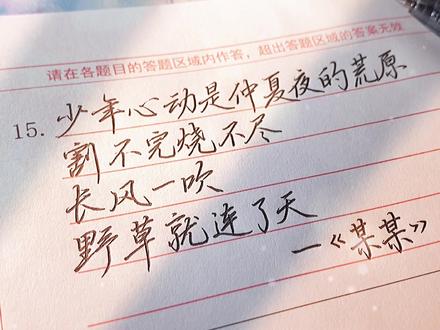 请在各题目的答题区域内作答，超出答题区域的答案无效
15. 少年心动是仲夏夜的荒原
割不完烧不尽
长风一吹
野草就连了天
—《某某》